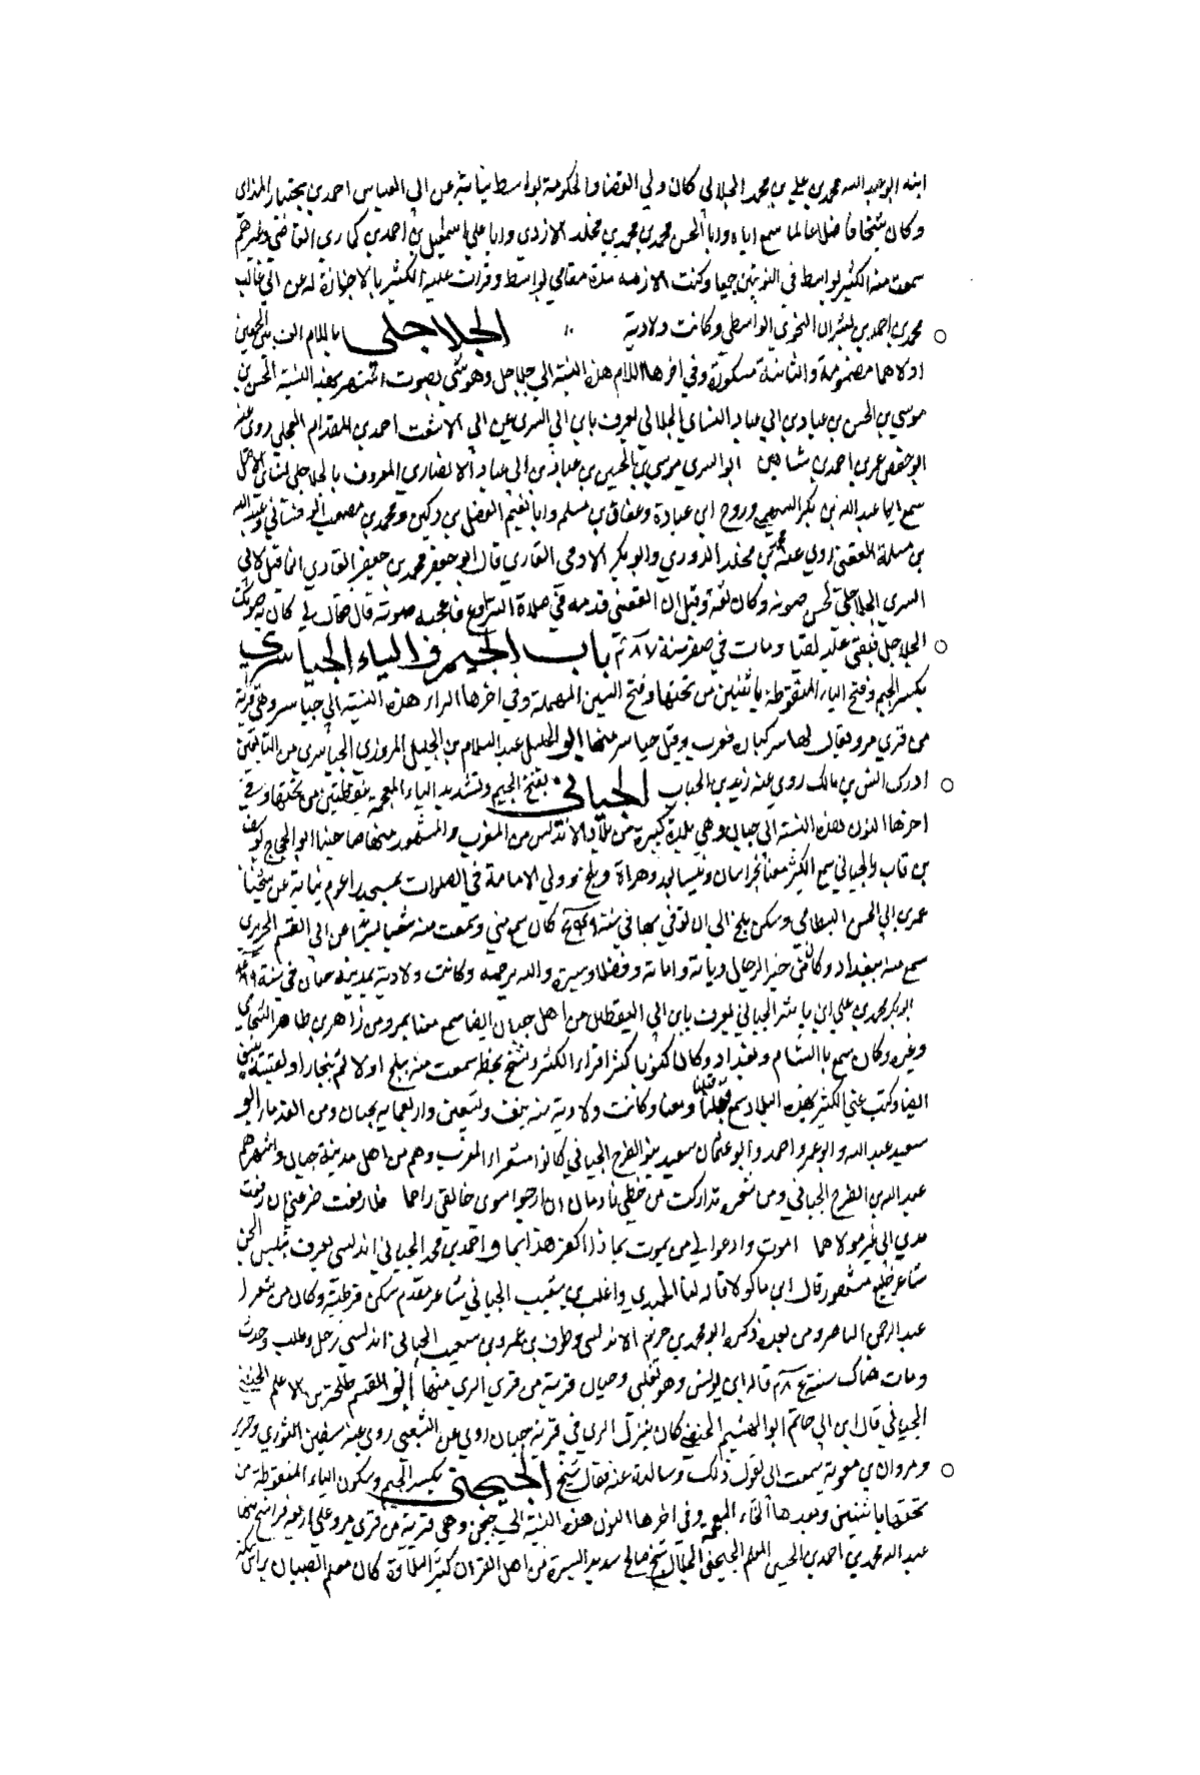 ابنه ابو عبد الله محمد بن علي بن محمد الجلابي كان ولي القضا والحكومة بواسط نيابة عن ابي العباس احمد بن بختيار المنداي
وكان شيخا فاضلا عالما سمع اباه وابا الحسن محمد بن محمد بن مخلد الازدي وابا علي اسمعيل بن احمد بن كماري القاضي وغيرهم
سمعت منه الكثير بواسط في النوبتين جميعا وكنت الازمه مدة مقامي بواسط وقرات عليه الكثير بالاجازة له عن ابي غالب
محمد بن احمد بن بشران النحوي الواسطي وكانت ولادته الجلاجلي بالام الف بين الجيمين
اولاهما مضمومة والثانية مكسورة وفي اخرها اللام هذه النسبة الى جلاجل وهو شي يصوت اشتهر بهذه النسبة الحسن بن
موسي بن الحسن بن عباد بن ابي عباد النسائي الجلابي يعرف بابن ابي السري عن ابي الاشعث احمد بن المقدام العجلي روى عنه
ابو حفص عمر بن احمد بن شاهين ابو السري موسي بن الحسين بن عباد بن ابي عباد الانصاري المعروف بالجلاجلي نسائي الاصل
سمع ابا عبد الله بن بكر السهمي وروح ابن عبادة وعفان بن مسلم وابا نعيم الفضل بن دكين ومحمد بن مصعب القرقساني وعبد الله
بن مسلمة القعنبي روي عنه محمد بن مخلد الدوري وابو بكر الادمي القاري قال ابو جعفر محمد بن جعفر القاري انما قيل لابي
السري الجلاجلي لحسن صوته وكان ثقة وقيل ان القعنبي قدمه في صلاة التراويح فاعجبه صوته قال فقال لي كان صوتك
الجلاجل فبقي عليه لقبا ومات في صفر سنة ٢٨٧ باب الجيم والياء الجياسري
بكسر الجيم وفتح الياء المنقوطة باثنين من تحتها وفتح السين المهملة وفي اخرها الراء هذه النسبة الى جياسر وهي قرية
من قري مرو يقال لها سركباره فعرب وقيل جياسر منها ابو الخليل عبد السلام بن الخليل المروزي الجياسري من التابعين
ادرك انس بن مالك روي عنه زيد بن الحباب الجياني بفتح الجيم وتشديد الياء المعجمة بنقطتين من تحتها وفي
اخرها النون هذه النسبة الى جيان وهي بلدة كبيرة من بلاد الاندلس من المغرب والمشهور منها صاحبنا ابو الحجاج يوسف
بن الجياني سمع الكثير معنا بخراسان ونيسابور وهراة وبلخ وولي الامامة في الصلوات بمسجد راعوم نيابة عن شيخنا
عمر بن ابي الحسن البسطامي وسكن بلخ الى ان توفي بها في سنة كان سمع مني وسمعت منه شيئا يسيرا عن ابي القسم الحريري
سمع منه ببغداد وكان من خير الرجال ديانة وامانة وفضلا وسيرة والله يرحمه وكانت ولادته بمدينة جيان في سنة
ابو بكر محمد بن علي بن ياسر الجياني يعرف بابن ابي اليقظان من اهل جيان ايضا سمع معنا بمرو من زاهر بن طاهر الشحامي
وغيره وكان سمع بالشام وبغداد وكان كثيرا اقراء الكثير ونسخ بخطه سمعت منه ببلخ اولا ثم ببخارا ولقيته بنسف
ايضا وكتب عني الكثير بهذه البلاد سمع قبلنا ومعنا وكانت ولادته سنة نيف وتسعين واربعماية بجيان ومن القدماء ابو
سعيد عبد الله وابو عمرو احمد وابو عثمان سعيد بنو الفرج الجياني كانوا شعراء المغرب وهم من اهل مدينة جيان واشهرهم
عبد الله بن الفرج الجياني ومن شعره تداركت من خطي نادما ان ارجوا سوى خالقي راحما فلا رفعت صرعتي ان رفعت
يدي الى غير مولاهما اموت وادعوا لي من يموت بما ذا اكفر هذا بما واحمد بن محمد الجياني اندلسي يعرف بتلبس الجن
شاعر خليع مشهور قال ابن ماكولا قاله لنا الحميدي واغلب بن شعيب الجياني شاعر مقدم سكن قرطبة وكان من شعرا
عبد الرحمن الناصر ومن بعده ذكره ابو محمد بن حزم الاندلسي وطرف بن عمرو بن شعيب الجياني اندلسي رحل وطلب وحدث
ومات هناك سنة قاله ابن يونس وهو تغلبي وجيان قرية من قري الري منها ابو القسم طلحة بن الاعلم الحنفي
الجياني قال ابن ابي حاتم ابو الهيثم الحنفي كان ينزل الري في قرية جيان روي عن الشعبي روي عنه سفين الثوري وجرير
ومروان بن معوية سمعت ابي يقول ذلك وسالته عنه فقال شيخ الجيخني بكسر الجيم وسكون الياء المنقوطة من
تحتها باثنتين وبعدها الخاء المعجمه وفي اخرها النون هذه النسبة الى جيخن وهي قرية من قرى مرو على اربعة فراسخ منها
عبد الله محمد بن احمد بن الحسين المعلم الجيخني المقال شيخ صالح سديد السيرة من اهل القران كثير التلاوة كان معلم الصبيان براس سكة